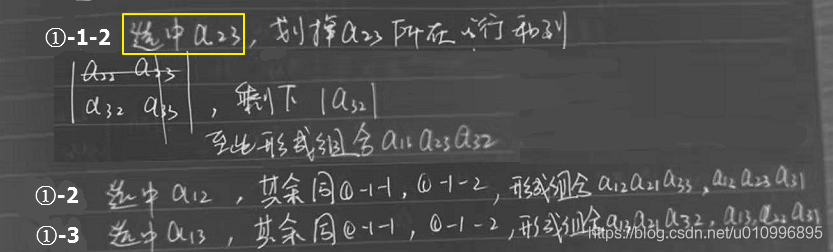 ①-1-2 选中 a23, 划掉 a23 所在的行和列
| a22 a23 |
| a32 a33 | , 剩下 |a32|
至此形成组合 a11 a23 a32
①-2 选中 a12 , 其余同①-1-1, ①-1-2, 形成组合 a12 a21 a33, a12 a23 a31
①-3 选中 a13 , 其余同①-1-1, ①-1-2, 形成组合 a13 a21 a32, a13 a22 a31
https://blog.csdn.net/u010996895